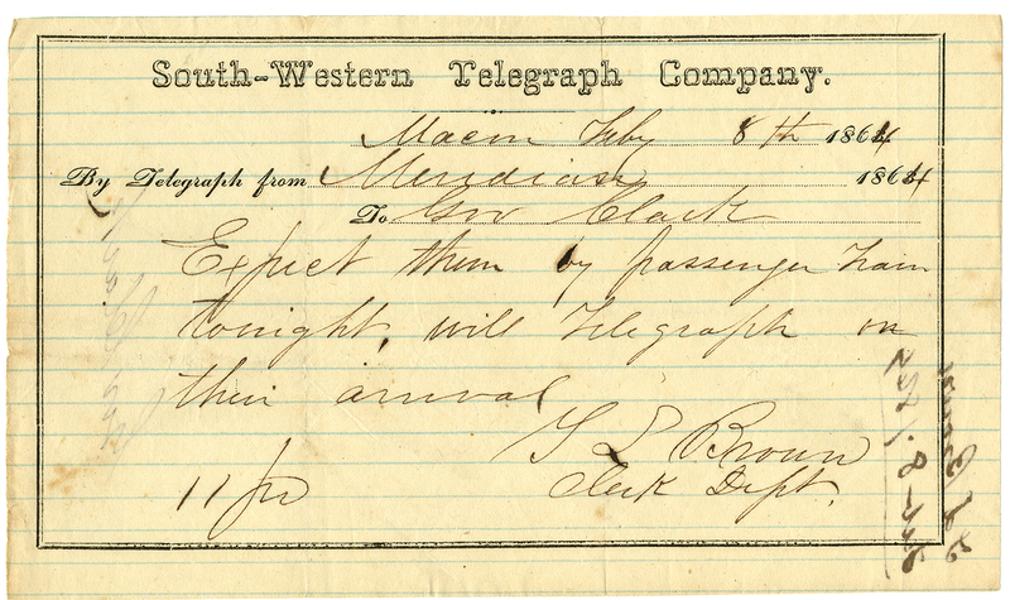 South-Western Telegraph Company.
Macon Feby 8th 1864
By Telegraph from Meridian 1864
To Gov Clark
Expect them by passenger train
tonight, will Telegraph on
their arrival
Brown
Clerk Dept.
11